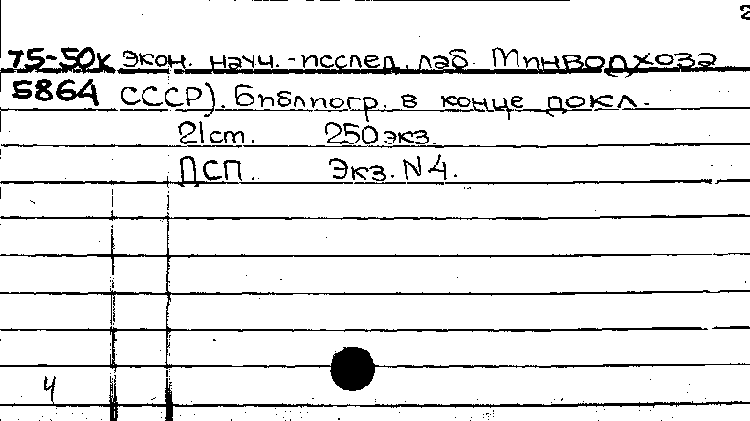 2
75-50к экон. науч.-исслед. лаб. Минводхоза
5864 СССР). Библиогр. в конце докл.
21 ст. 250 экз.
ДСП. Экз. N 4.
4